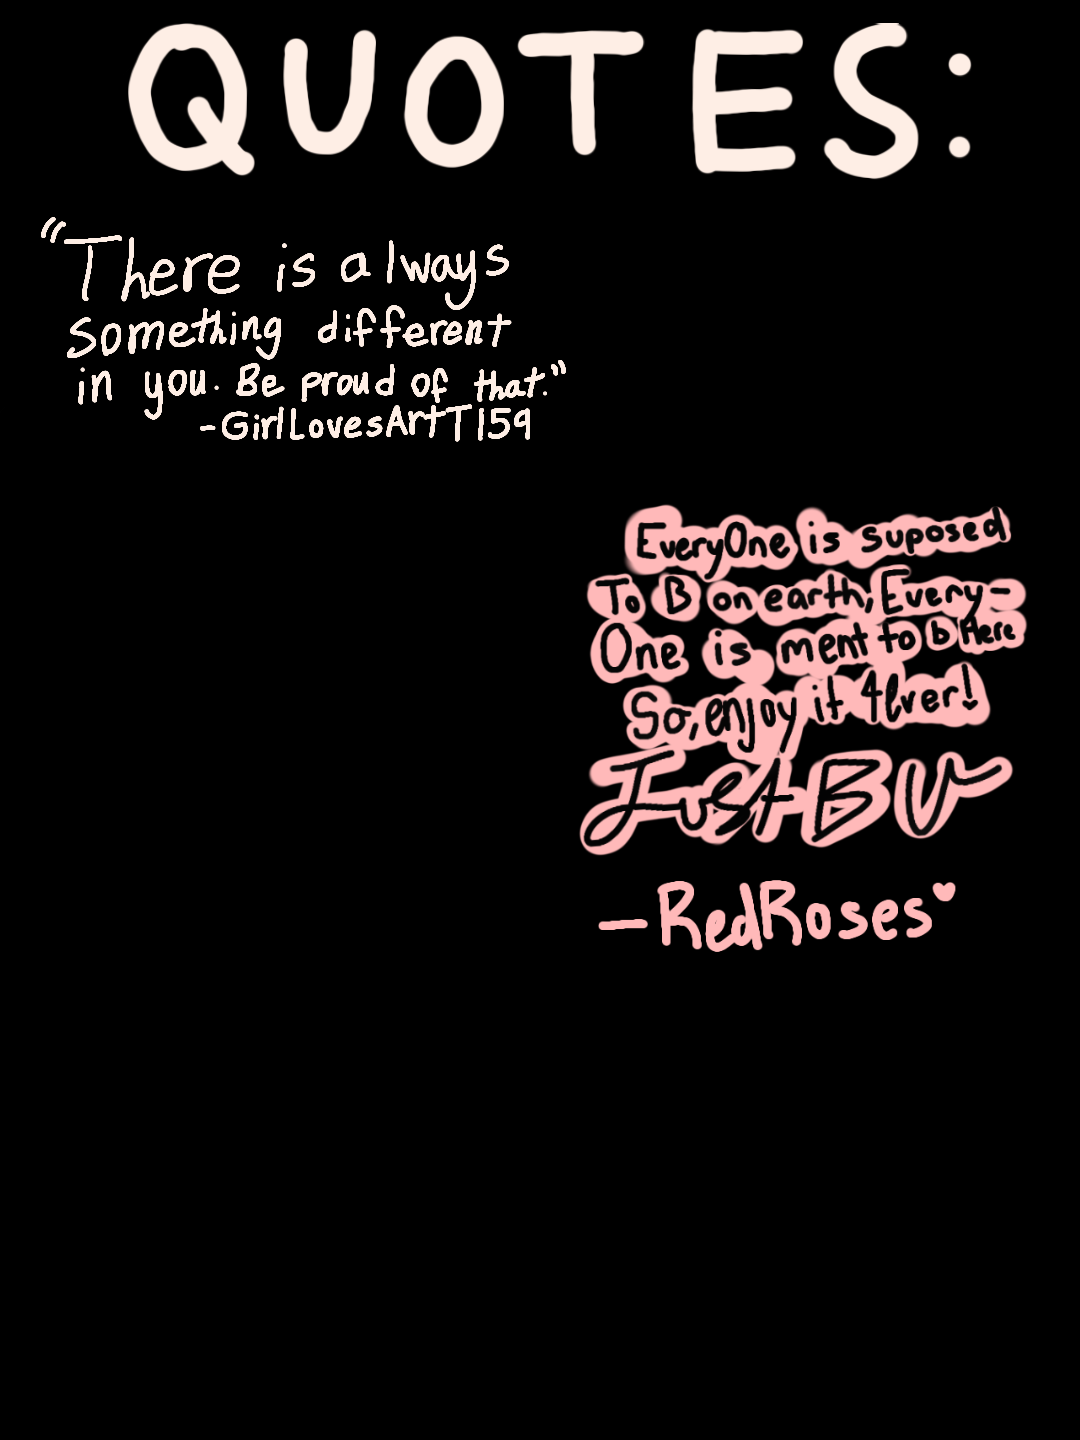 QUOTES:
"There is always
something different
in you. Be proud of that."
-GirlLovesArtT159
EveryOne is suposed
To B on earth, Every-
One is ment to b Here
So, enjoy it 4ever!
Just B U
-RedRoses♥